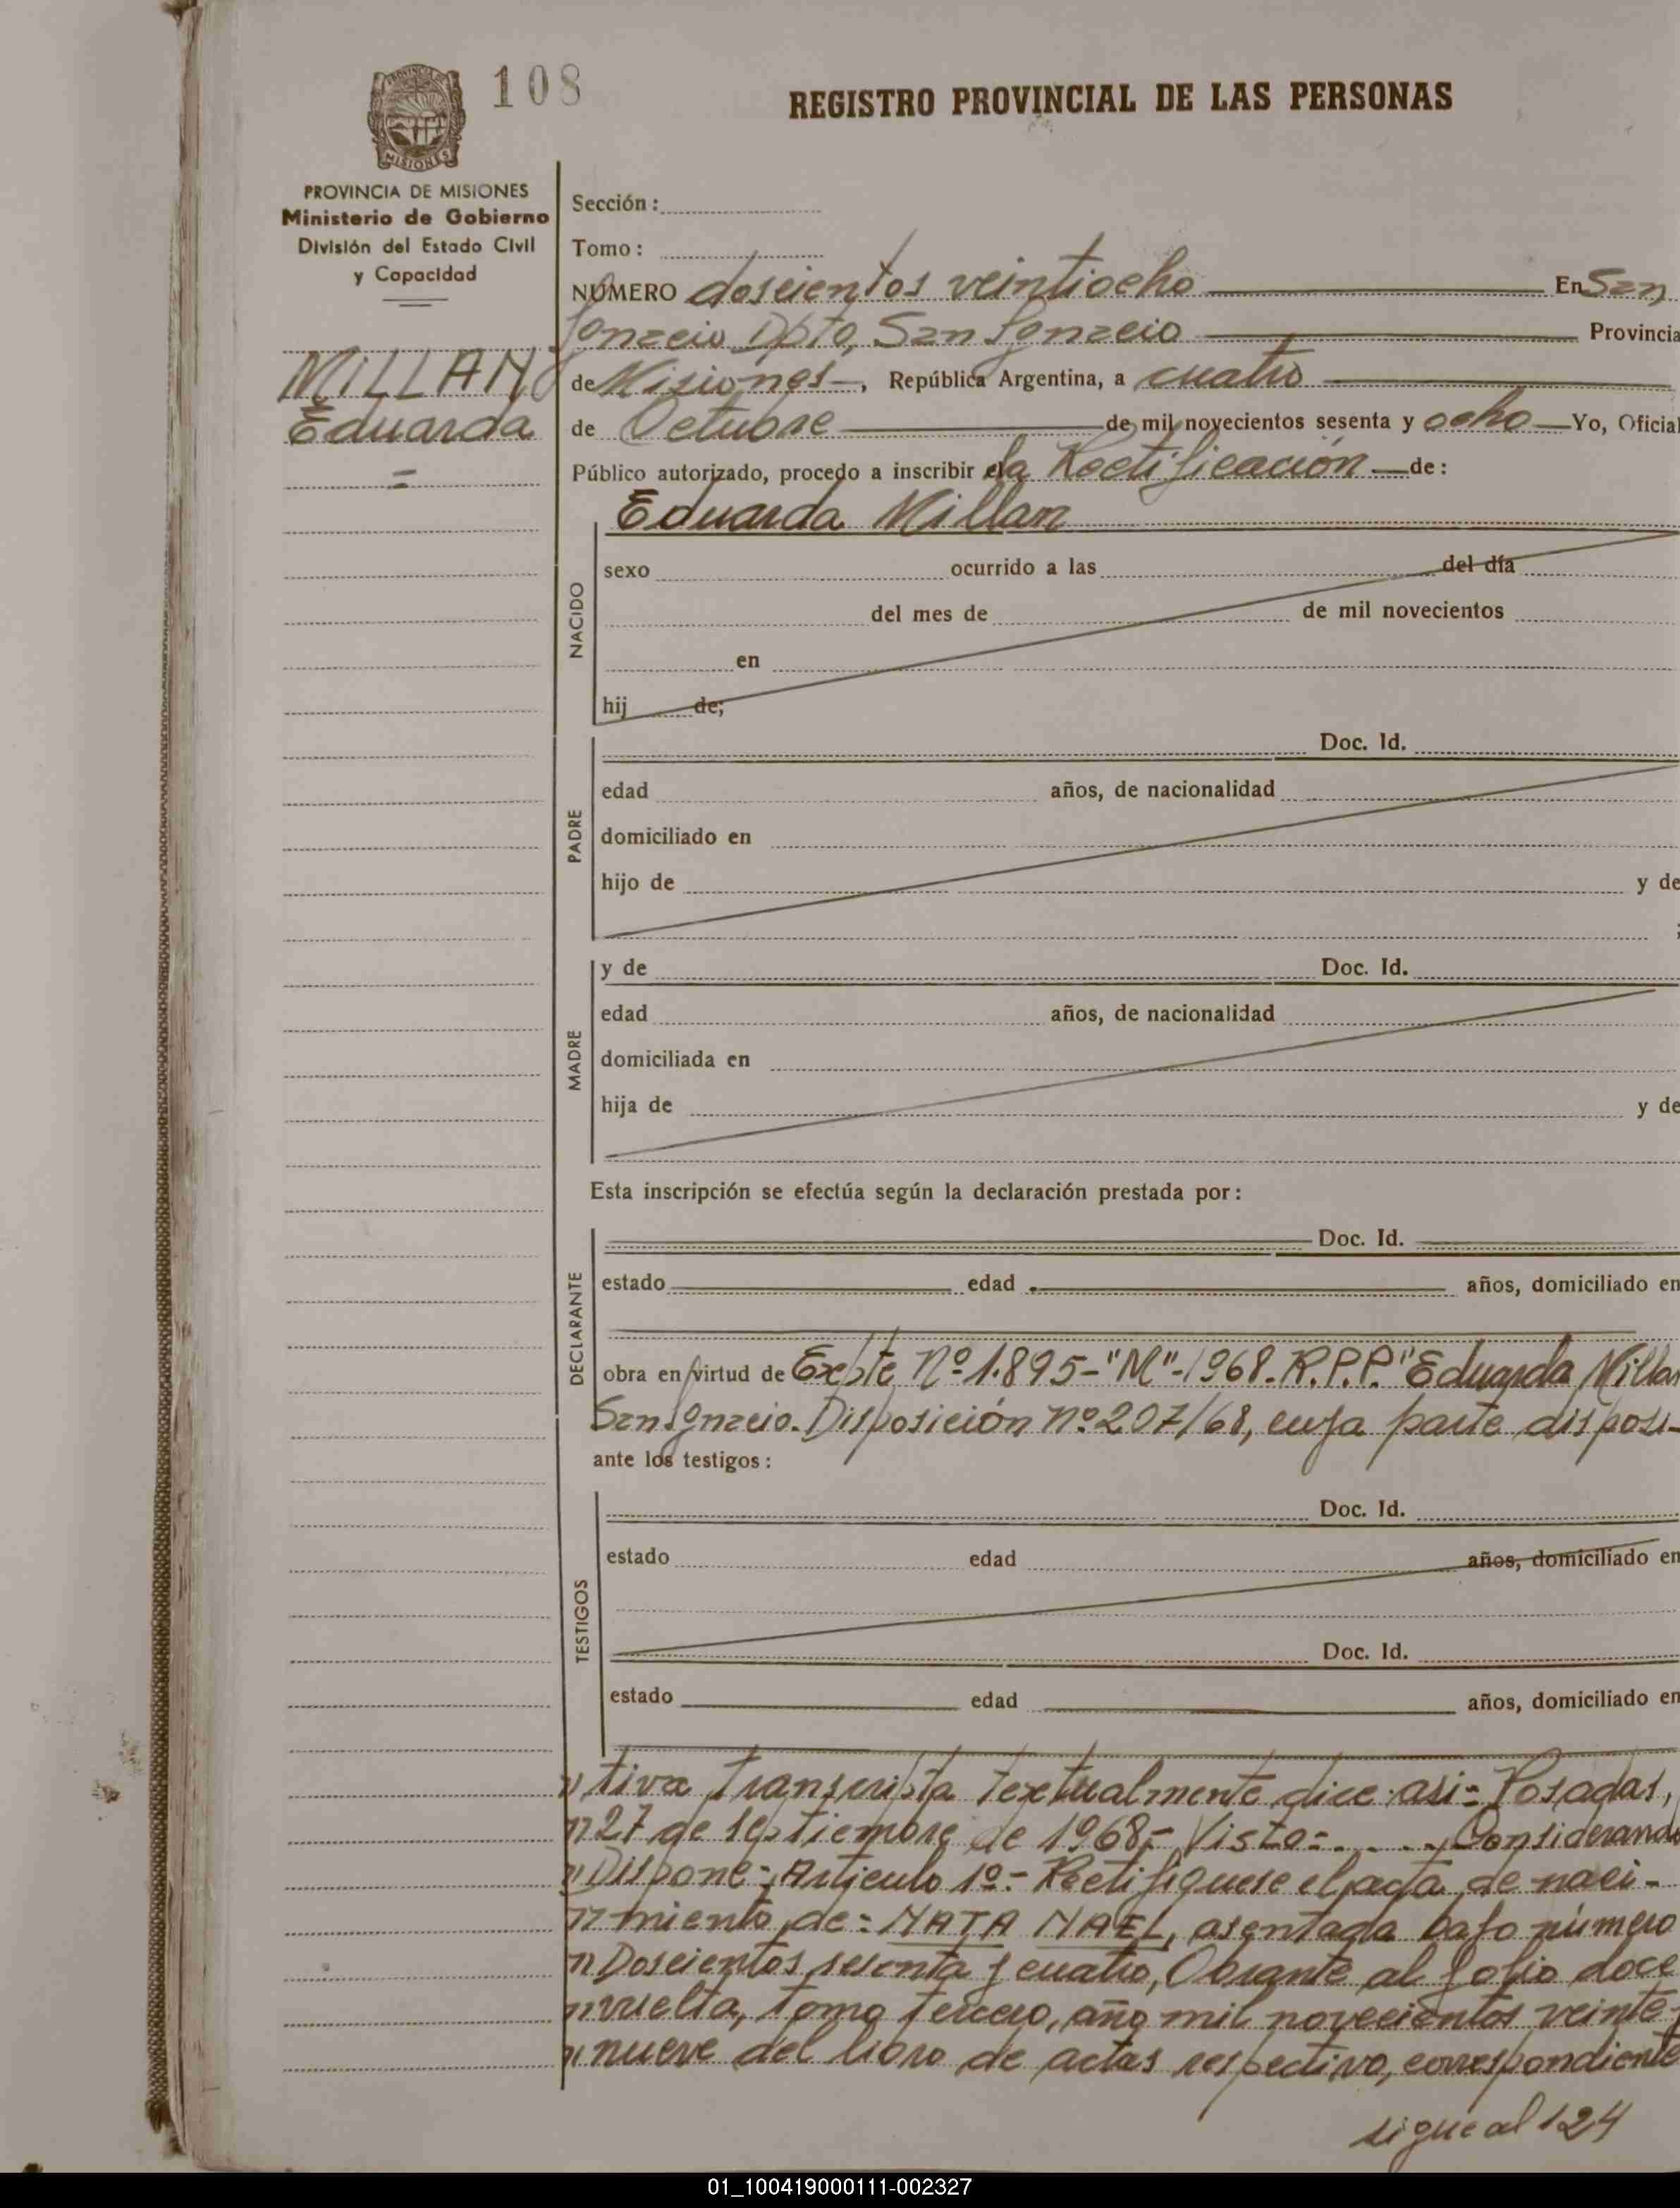 108
REGISTRO PROVINCIAL DE LAS PERSONAS
PROVINCIA DE MISIONES
Ministerio de Gobierno
División del Estado Civil
y Capacidad
MILLAN
Eduarda
Sección:
Tomo:
NÚMERO doscientos veintiocho En San
Ignacio Dpto, San Ignacio Provincia
de Misiones, República Argentina, a cuatro
de Octubre de mil novecientos sesenta y ocho Yo, Oficial
Público autorizado, procedo a inscribir la Rectificación de:
Eduarda Millan
NACIDO
sexo ocurrido a las del día
del mes de de mil novecientos
en
hij de;
PADRE
Doc. Id.
edad años, de nacionalidad
domiciliado en
hijo de y de
;
MADRE
y de Doc. Id.
edad años, de nacionalidad
domiciliada en
hija de y de
Esta inscripción se efectúa según la declaración prestada por:
DECLARANTE
Doc. Id.
estado edad años, domiciliado en
obra en virtud de Expte Nº 1.895-"M"-1968. R.P.P. "Eduarda Millan
San Ignacio. Disposición nº 207/68, cuya parte disposi-
ante los testigos:
TESTIGOS
Doc. Id.
estado edad años, domiciliado en
Doc. Id.
estado edad años, domiciliado en
" tiva transcripta textualmente dice asi = Posadas,
" 27 de septiembre de 1968.- Visto=..... Considerando
" Dispone=, Articulo 1º.- Rectifiquese el acta de naci-
" miento de= NATA NAEL, asentada bajo número
" Doscientos sesenta y cuatro, Obrante al folio doce
" vuelta, tomo tercero, año mil novecientos veinte y
" nueve del libro de actas respectivo, correspondiente
sigue al 124
01_100419000111-002327